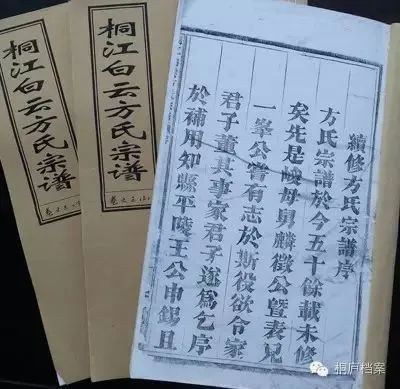 桐江白云方氏宗谱
桐江白云方氏宗谱
續修方氏宗譜序
方氏宗譜於今五十餘載未修
矣先是峻母舅麟徵公暨表兄
一峯公嘗有志於斯役欲令家
君子董其事家君子遂為乞序
於補用知縣平陵王公申錫且
桐庐档案